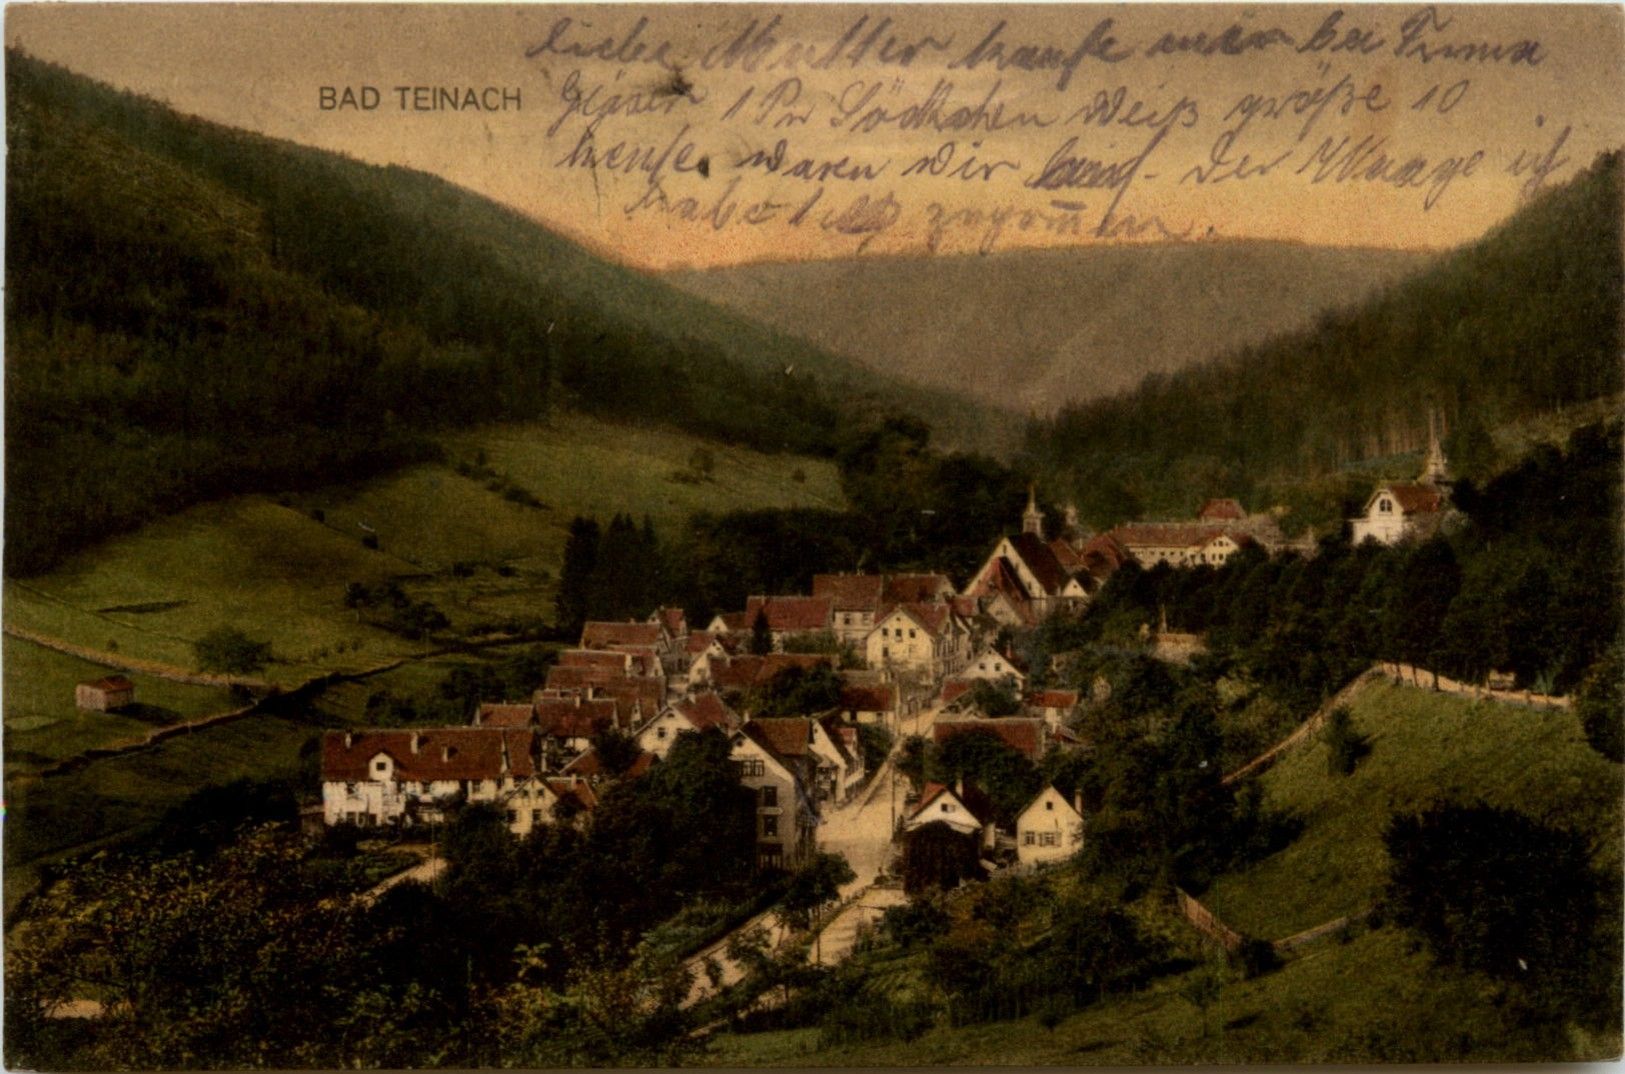 BAD TEINACH
liebe Mutter kaufe mir bei Firma
Gläser 1 Pr Söckchen weiß größe 10
heute waren wir auf der Waage ich
habe 1 zugenom̄en.